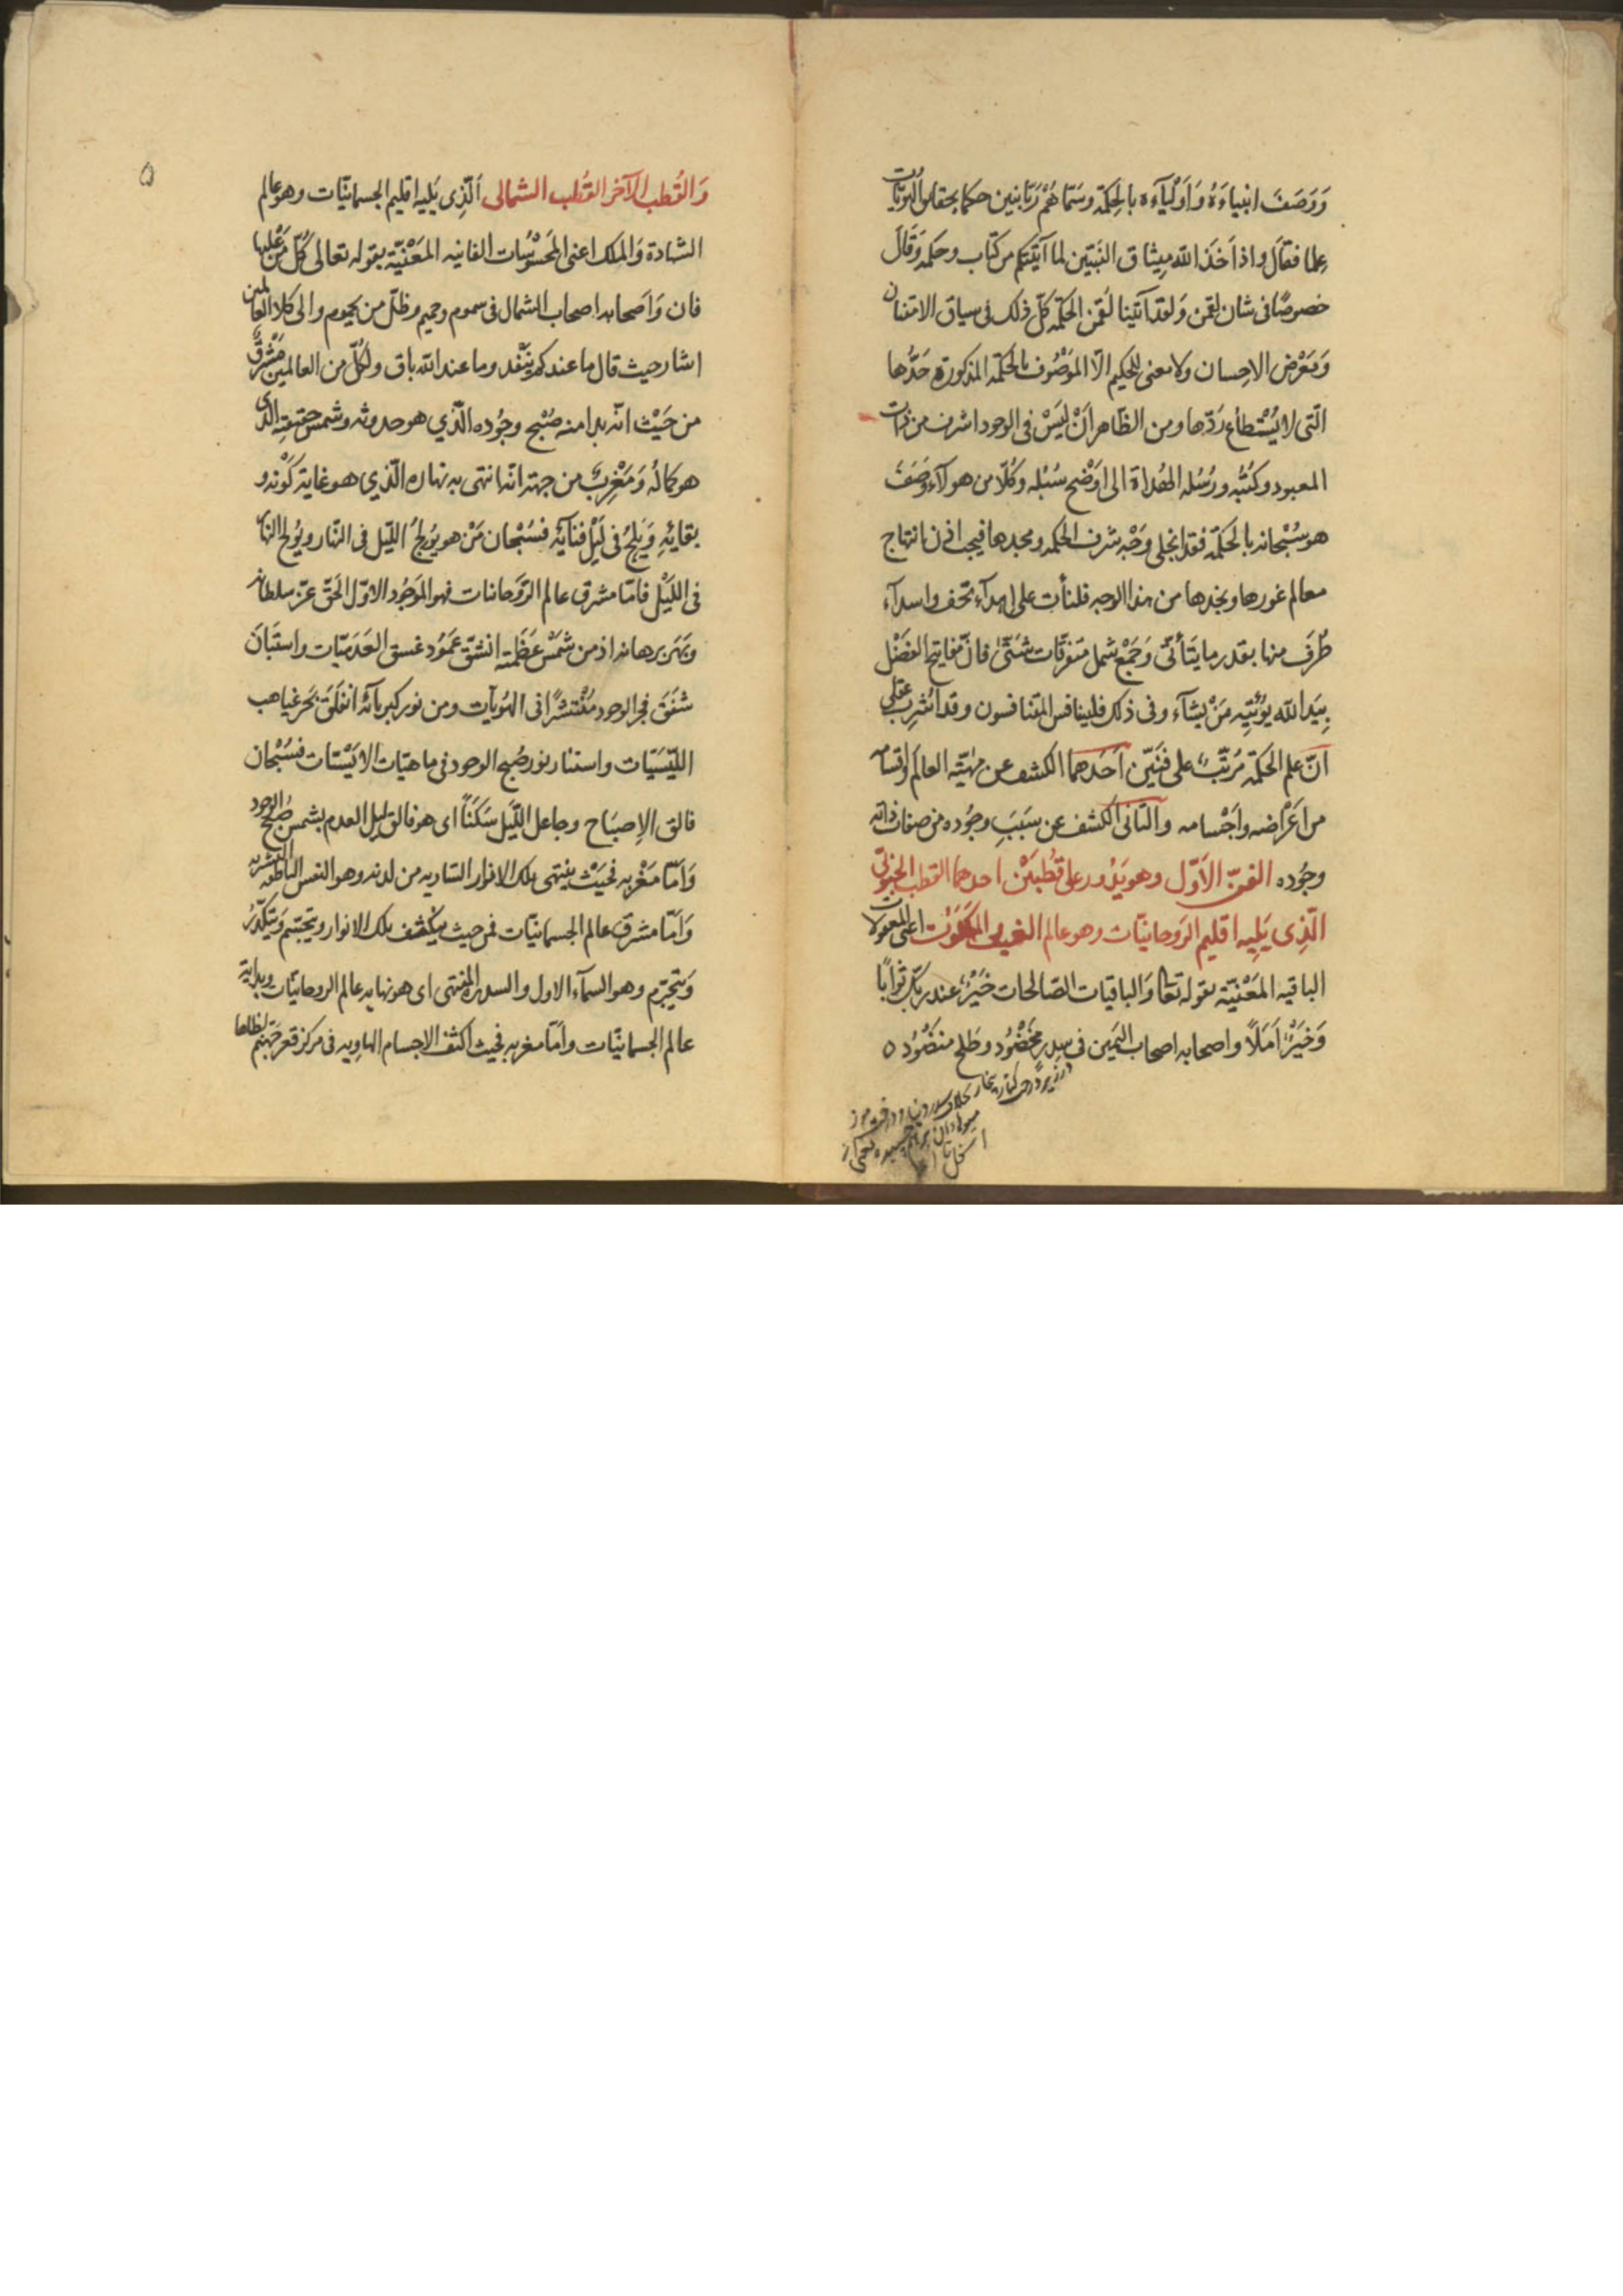 وَوَصَفَ انبياءَهُ وَاَوْلياءَه بالحِكمَة وسَمّاهُمْ رَبّانيين حكماء بحقايق الهُوِيّات
علما فقال واذ اَخَذَ الله ميثاق النَبيّين لما آتيتكم من كتاب وحكمه وَقَالَ
خصوصًا فى شان لقمن وَلقد آتينا لقمن الحكمة كلّ ذلك فى سياق الامتنان
وَمَعْرض الاحسان ولا معنى للحكيم الّا المَوصُوف بالحكمة المذكورة حَدُّها
الّتى لا يُسْتطاع رَدّها ومن الظاهر اَنْ لَيسَ فى الوجود اشرف من ذات
المعبود وكتبُه ورُسُله الهُداة الى اَوْضح سُبُله وكُلّا من هولآء وَصَفَ
هو سُبْحانه بالحكمة فقد انجلى وَجْه شرف الحكمه ومجدها فيجب اذن انتهاج
معالم غورها ونجدها من هذا الوجه فلنأت على اهدآء تحف واسدآء
طُرَف منها بقدر ما يتَأتّى وَجَمْع شمل متفرّقات شَتّىٰ فانّ مفاتيح الفَضْل
بِيَد الله يؤتيه مَنْ يشآء وفى ذلك فلينافس المتنافسون وقد اُشرِب عقلى
اَنّ علم الحكمَة مُرَتّب على فنّين اَحَدهما الكشف عن مهيّة العالَم واقسامه
من اَعْرَاضه واَجْسامه والثانى الكشف عن سَبَبِ وجُوده من صفات ذاته
وجُوده الفنّ الاَوّل وهو يَدُور على قُطبَيْن احدهما القطب الجنوبى
الّذِى يَلِيه اقليم الرَوحانيّات وهو عالم الغيب والملكُوْت اعنى المعقولات
الباقيه المَعْنيّة بقوله تعا وَالباقيات الصّالحات خَيْرٌ عند ربّك ثوابًا
وَخَيْرٌ اَمَلًا واصحابه اصحاب اليَمين فى سِدر مَخْضُود وطَلح منضُود ٥
وَالقُطب الآخر القُطب الشمالى اَلّذِى يَليه اقليم الجسمانيّات وهو عالم
الشهادة وَالملك اعنى المَحسُوسَات الفانيه المَعْنيّة بقوله تعالى كُلّ مَنْ عَلَيها
فان وَاَصحابه اصحاب الشمال فى سموم وحميم وظلّ من يحموم والى كلا العالمين
اشار حيث قال ما عندكم يَنْفد وما عند الله باق ولكُلّ من العالمين مَشْرقٌ
من حَيْث انّه بدا منه صُبْح وجُوده الّذي هو حدوثه وشمس حقيقته الّذى
هو كمالُه وَمَغْرِبٌ من جهة انّه انتهى به نهاره الّذي هو غاية كَوْنه و
بقايَهِ وَيَلِجُ فى لَيْل فنآيَه فَسُبْحان مَنْ هو يُولِجُ اللّيل فى النّهار ويُولج النهار
فى اللَيْل فامّا مشرق عالم الرّوحانيات فهو المَوجُود الاوّل الحَقّ عَزّ سلطانه
وبَهَر برهانه اذ من شَمْس عَظَمَته انشَقّ عَمُود غسق العَدَميّات واستَبَانَ
شَفَقَ فجر الوجود مُنْتشرًا فى الهُويّات ومن نور كبريائه انفَلَقَ بَحر غياهب
اللَيْسَيّات واستنار نور صُبح الوجود فى ماهيّات الاَيْسيّات فسُبْحان
فالق الاِصبَاح وجاعل اللّيل سَكَنًا اى هو فالق ليل العدم بشمس صُبْح الوجود
وَامّا مَغْربه فحَيْث ينتهى تلك الانوار السّاريه من لدنه وهو النفس الناطقه البشريه
وَاَمّا مشرق عالم الجسمانيّات فمن حيث ينكشف تلك الانوار ويتجسّم وَيتَكَدّرُ
وَيتجَرّم وهو السمآء الاول والسدره المنتهى اى هو نهايه عالم الروحانيّات وبداية
عالم الجسمانيّات وامّا مغربه فحيث اكثف الاجسام الهاوِيه فى مركز قعر جَهَنّم لظاها